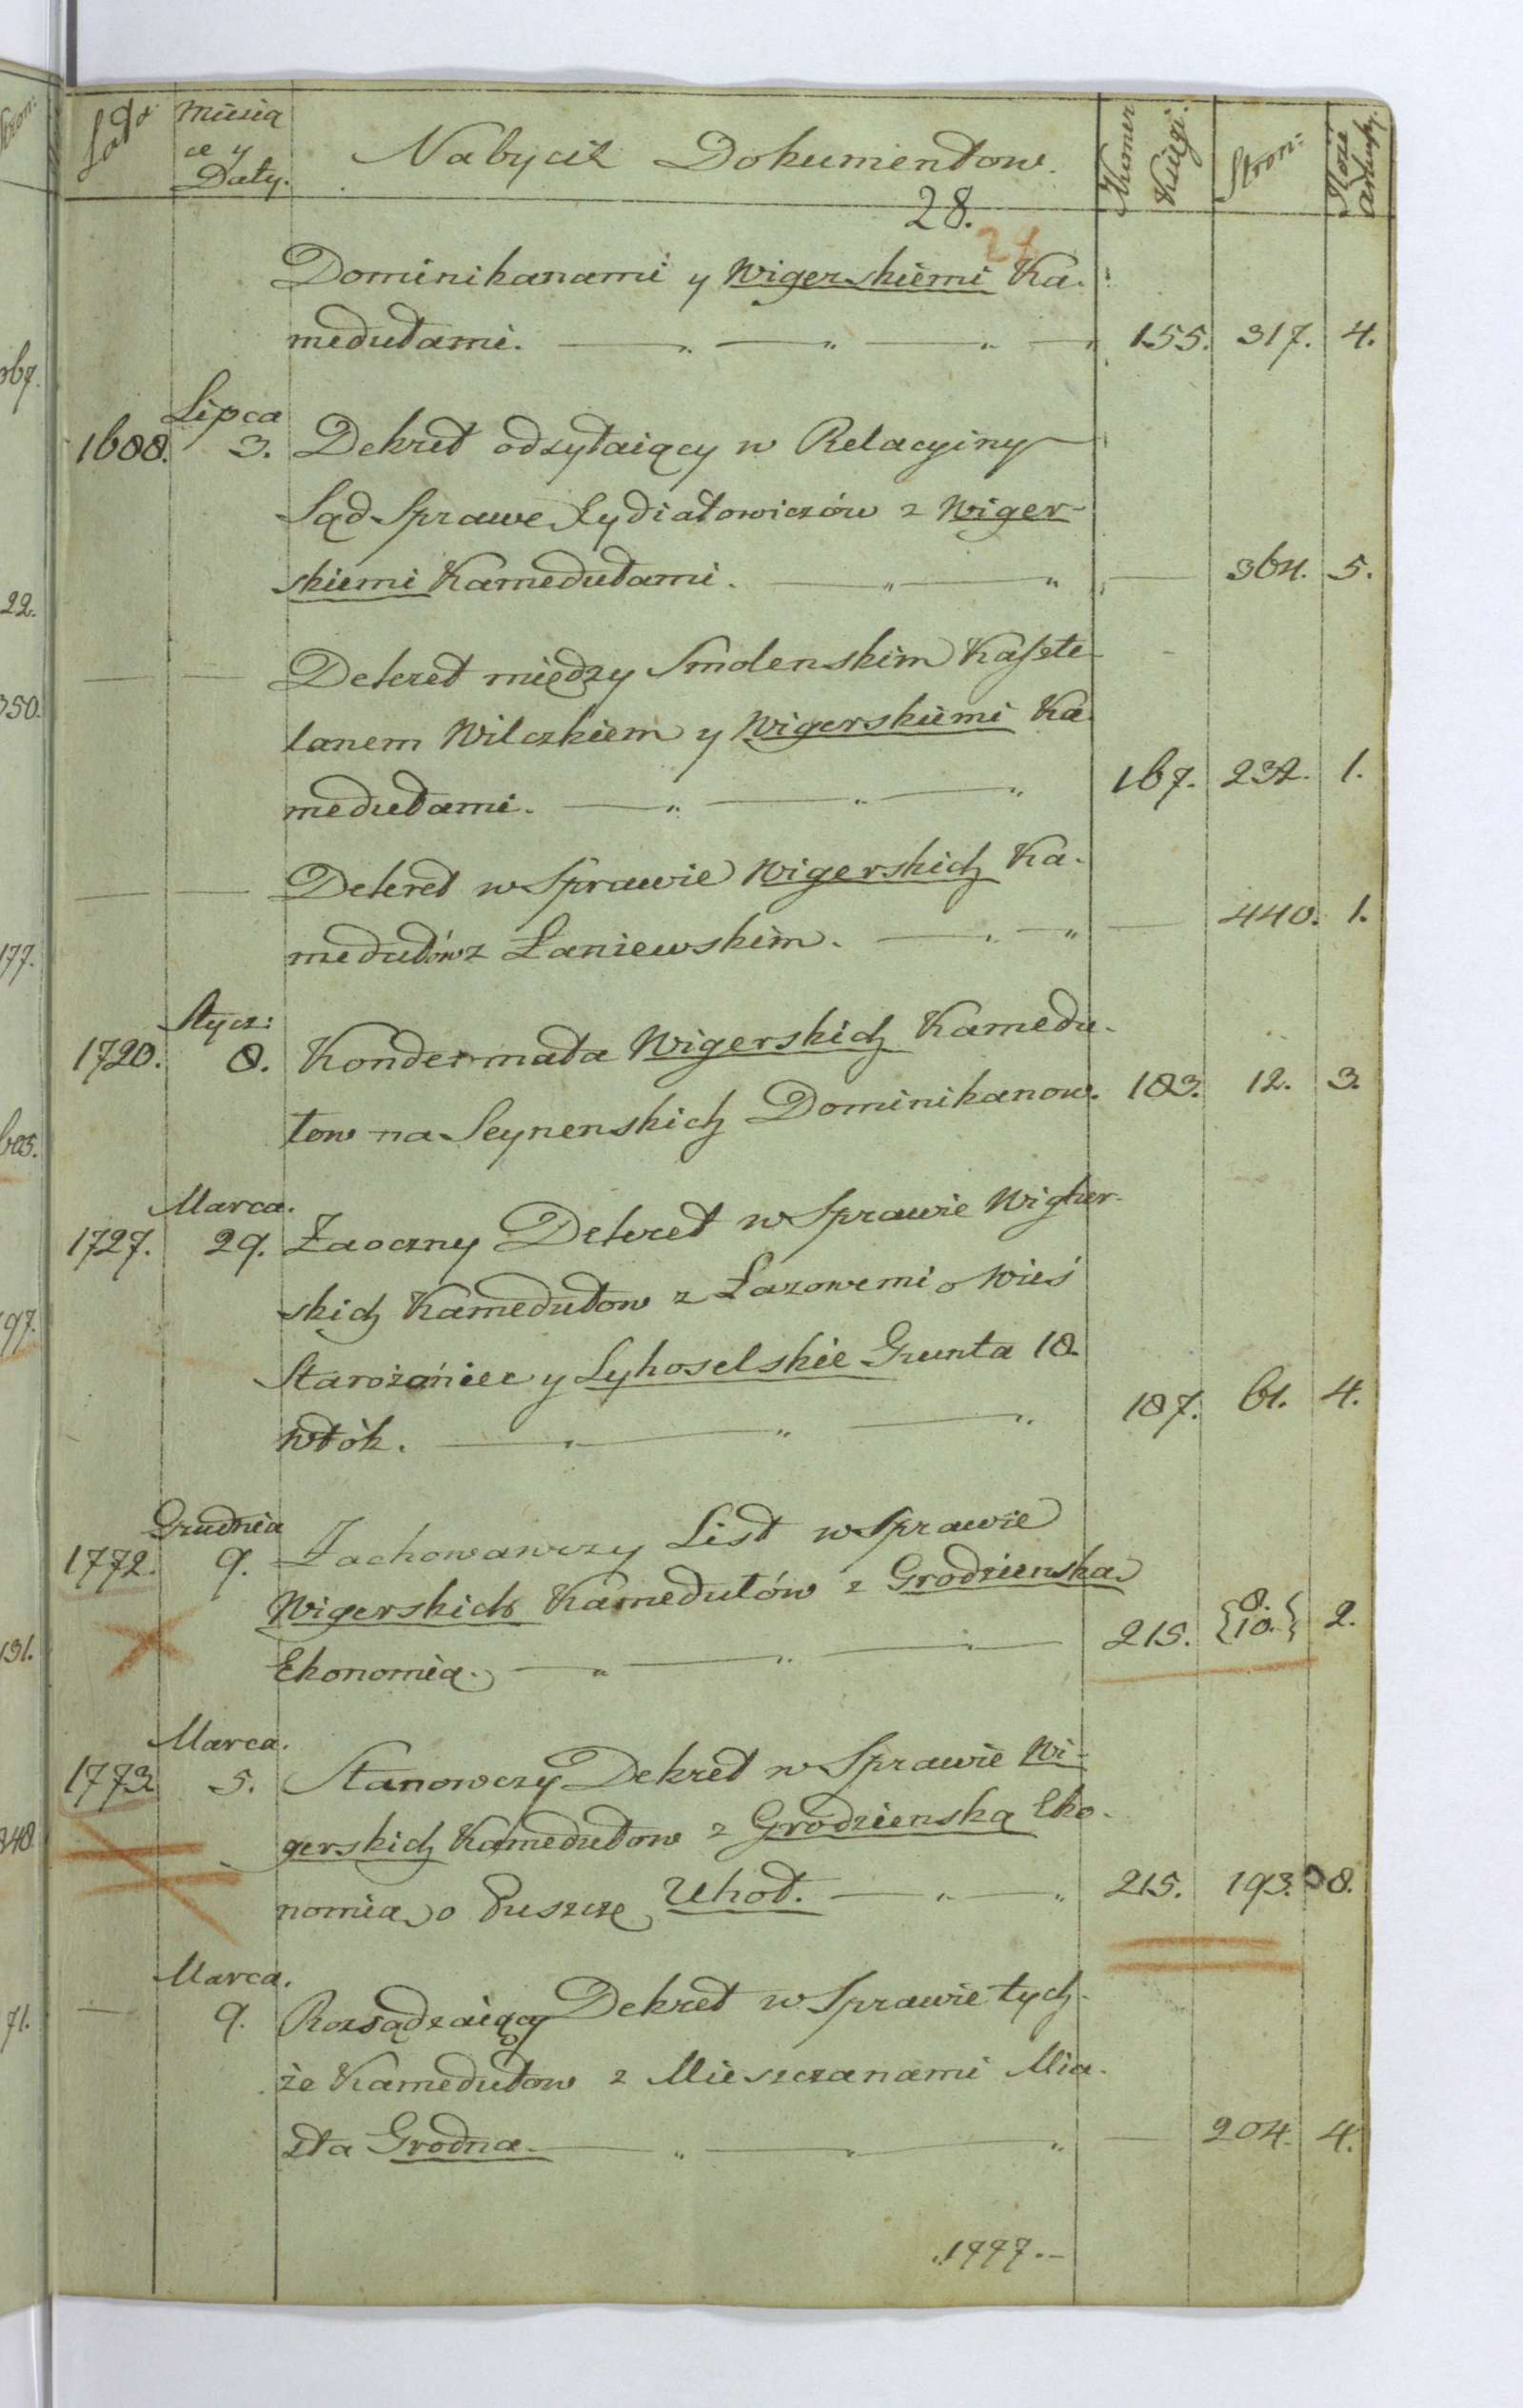 Miesią
ce y
Daty.
Nabycie Dokumentow.
Numer
Księgi.
Stron:
28.
Dominikanami y Wigerskiemi Ka-
medułami. 155. 317. 4.
Lipca
1688. 3. Dekret odsyłaiący w Relacyiny
Sąd Sprawe Żydiatowiczów z Wiger-
skiemi Kamedułami. 364. 5.
Dekret między Smolenskim Kaszte-
lanem Wilczkiem y Wigerskiemi Ka-
medułami. 167. 232. 1.
Dekret w Sprawie Wigerskich Ka-
medułów z Łaniewskim. 440. 1.
Stycz:
1720. 8. Kondemnata Wigerskich Kamedu-
łow na Seynenskich Dominikanow. 183. 12. 3.
Marca.
1727. 29. Zaoczny Dekret w Sprawie Wigier-
skich Kamedułow z Łazowemi o Wieś
Starożaniec y Lyhoselskie Grunta 18.
Włók. 187. 61. 4.
Grudnia
1772. 9. Zachowawczy List w Sprawie
Wigerskich Kamedułów z Grodzienską
Ekonomią. 215. {8. 10.} 2.
Marca.
1773. 5. Stanowczy Dekret w Sprawie Wi-
gerskich Kamedułow z Grodzienską Eko-
nomią o Puszczę Uhoł. 215. 193. 8.
Marca.
9. Rozsądzaiący Dekret w Sprawie tych-
że Kamedułow z Mieszczanami Mia-
sta Grodna. 204. 4.
1777.